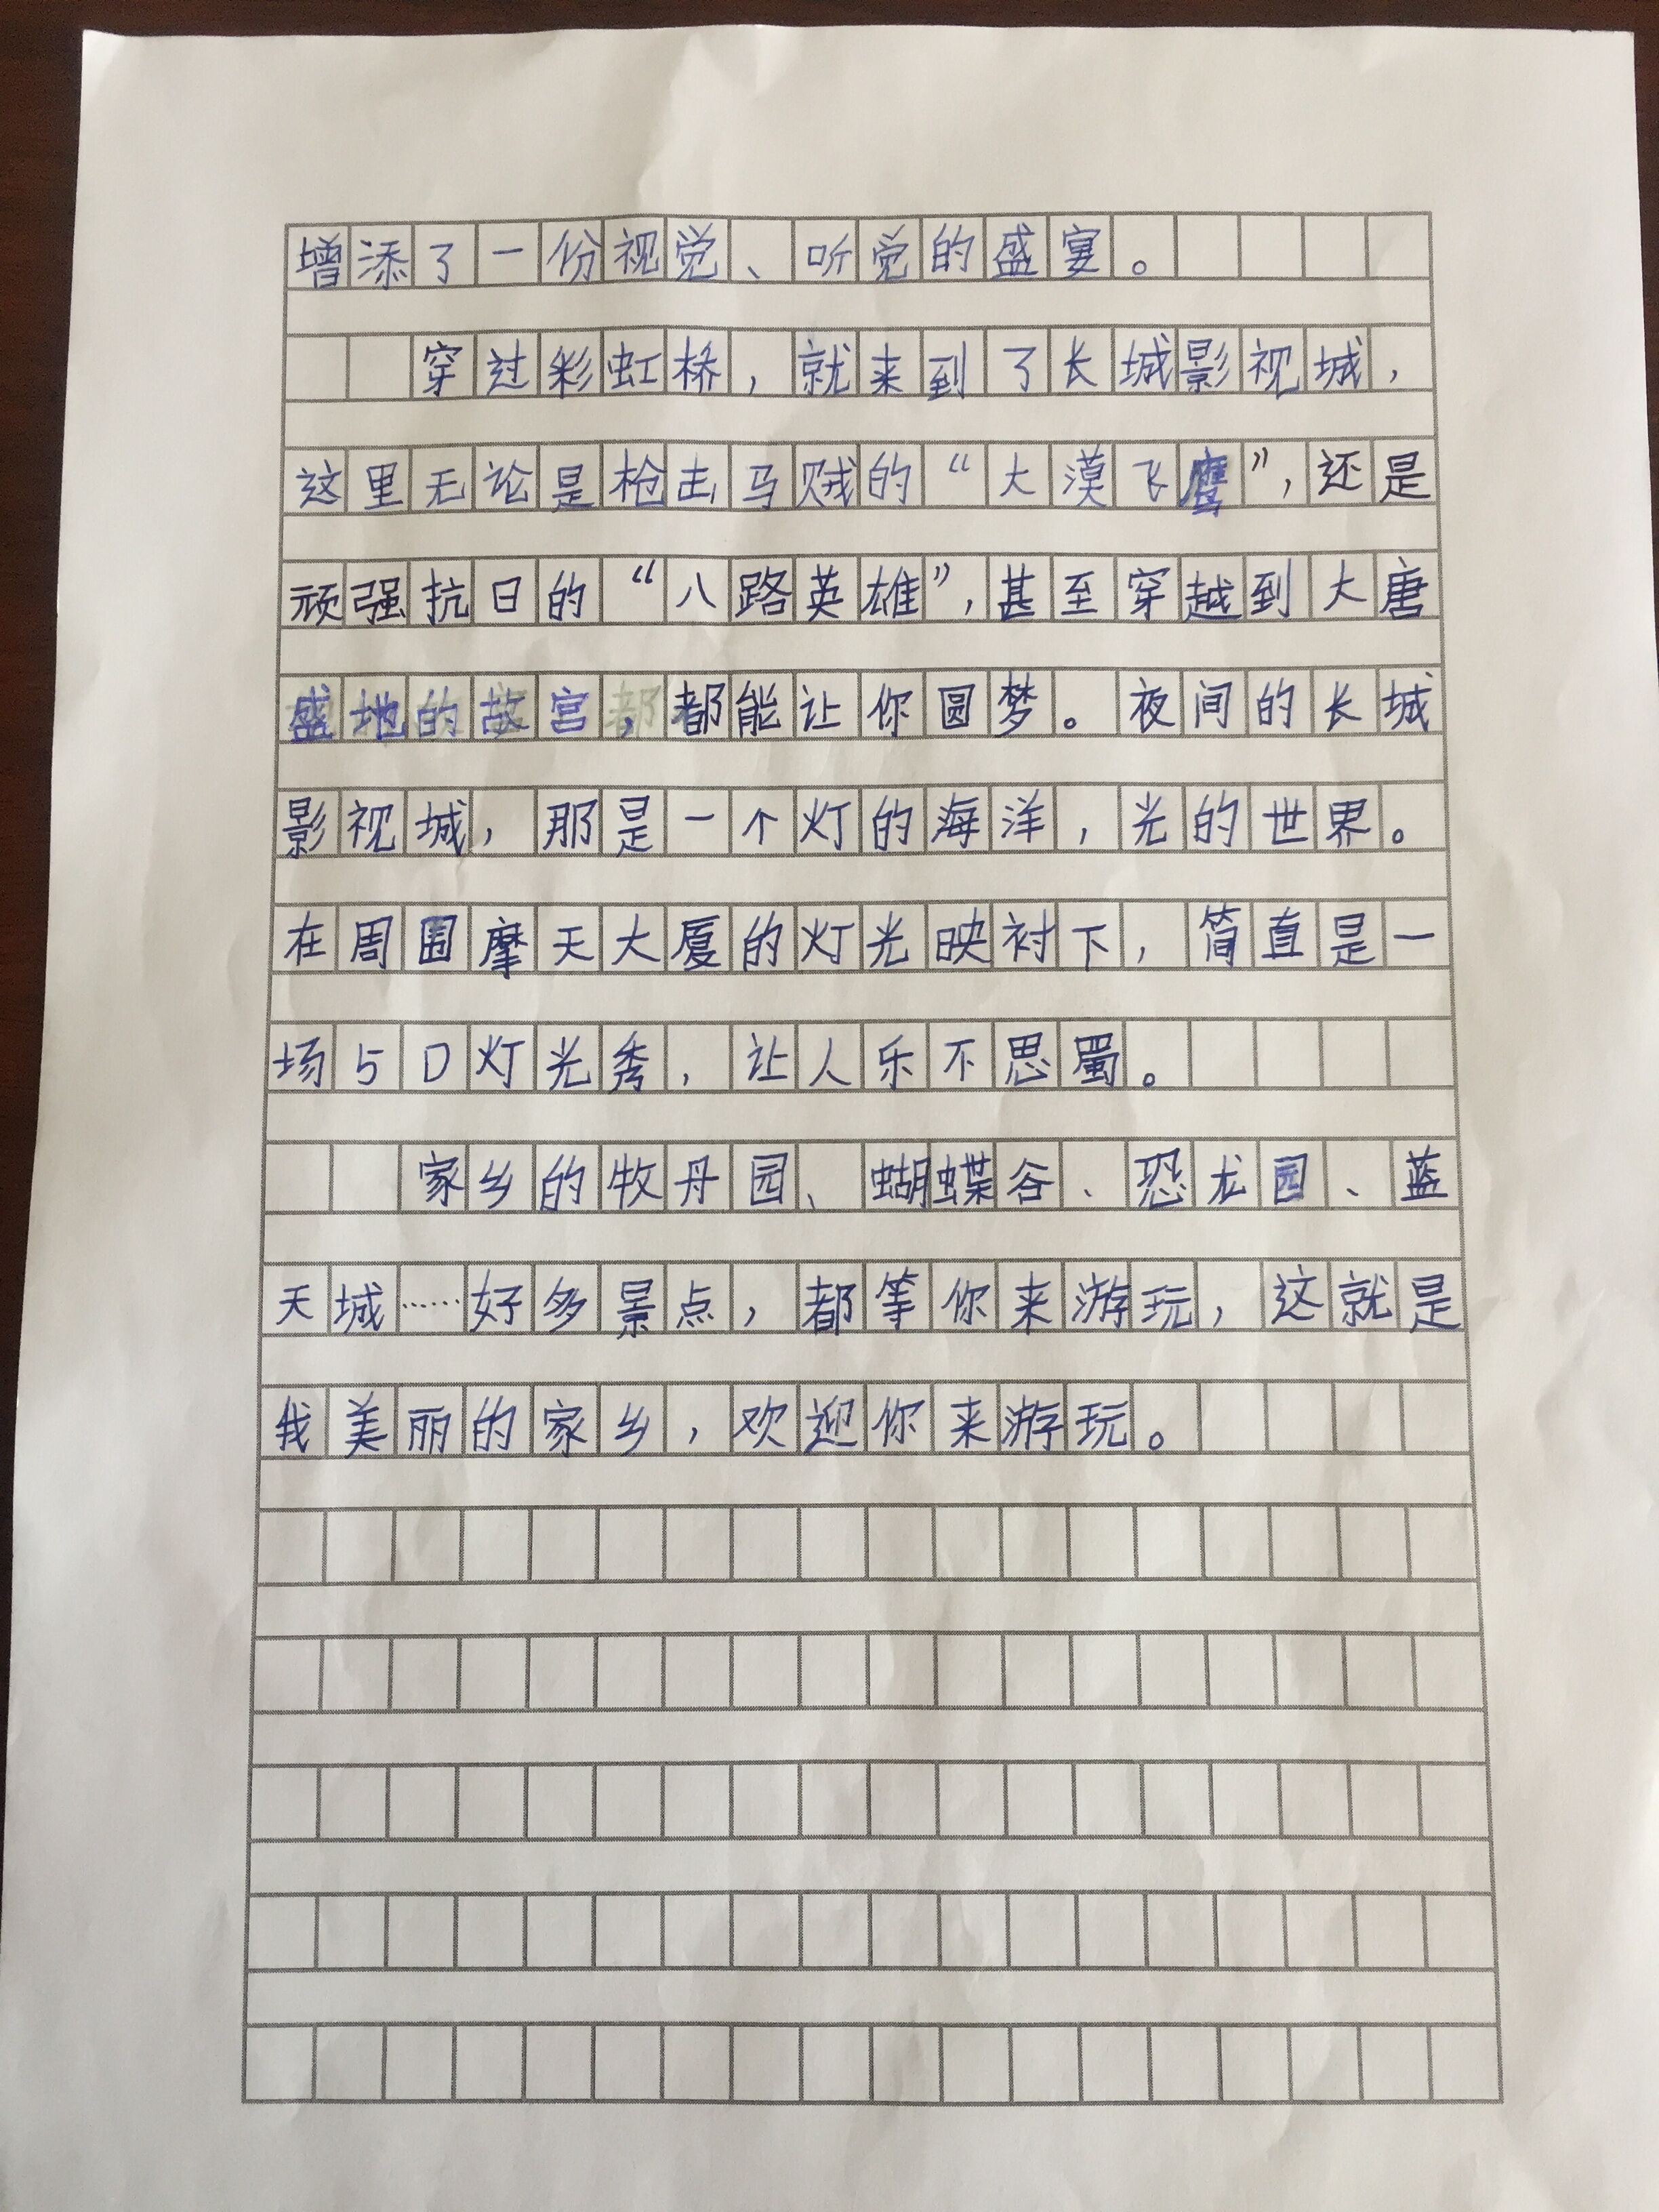 增添了一份视觉、听觉的盛宴。
穿过彩虹桥，就来到了长城影视城，
这里无论是枪击马贼的“大漠飞鹰”，还是
顽强抗日的“八路英雄”，甚至穿越到大唐
盛地的故宫，都能让你圆梦。夜间的长城
影视城，那是一个灯的海洋，光的世界。
在周围摩天大厦的灯光映衬下，简直是一
场5D灯光秀，让人乐不思蜀。
家乡的牧丹园、蝴蝶谷、恐龙园、蓝
天城……好多景点，都等你来游玩，这就是
我美丽的家乡，欢迎你来游玩。